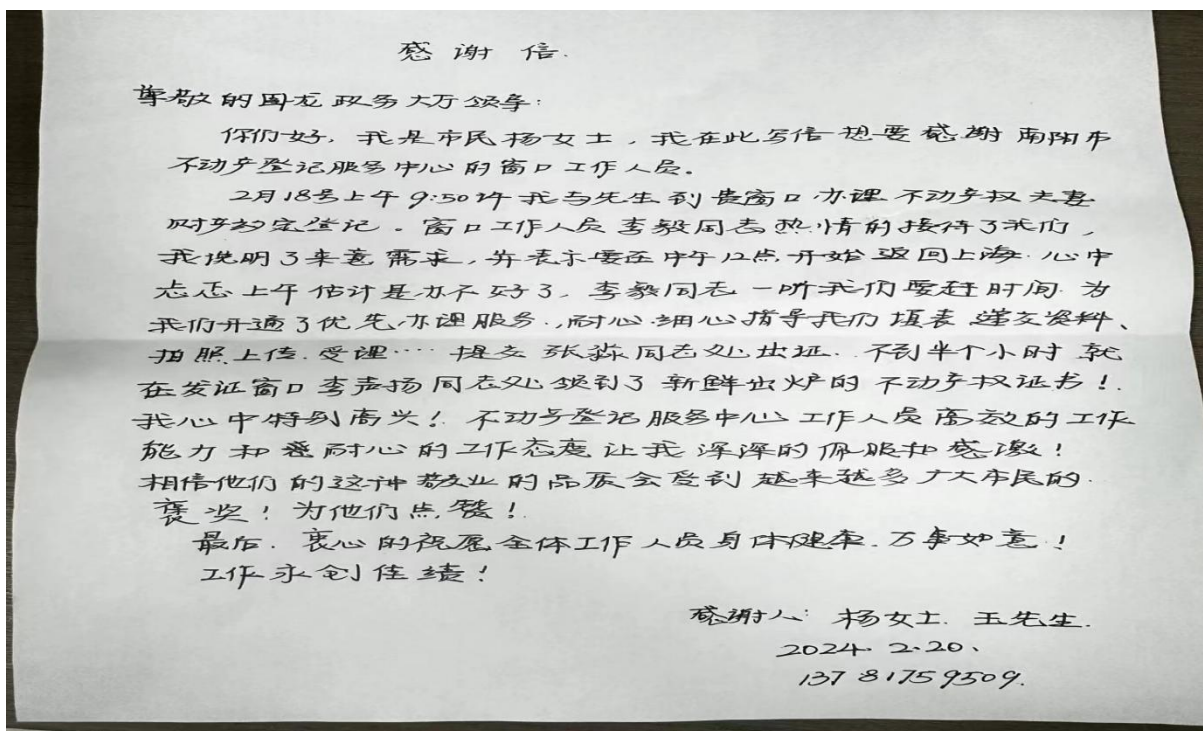 感谢信.
尊敬的周龙政务大厅领导:
你们好，我是市民杨女士，我在此写信想要感谢南阳市
不动产登记服务中心的窗口工作人员。
2月18号上午9:50许我与先生到贵窗口办理不动产权夫妻
财产约定登记。窗口工作人员李毅同志热情的接待了我们，
我说明了来意需求，并表示要在中午12点开始返回上海.心中
忐忑上午估计是办不好了，李毅同志一听我们要赶时间.为
我们开通了优先办理服务.，耐心.细心指导我们填表.递交资料、
拍照上传.受理…提交张淼同志处出证.不到半个小时就
在发证窗口李声扬同志处领到了新鲜出炉的不动产权证书！.
我心中特别高兴！不动产登记服务中心工作人员高效的工作
能力和爱耐心的工作态度让我深深的佩服和感激！
相信他们的这种敬业的品质会受到越来越多广大市民的.
褒奖！为他们点赞！
最后.衷心的祝愿全体工作人员身体健康.万事如意！
工作永创佳绩！
感谢人:杨女士.王先生.
2024.2.20、
13781759509.